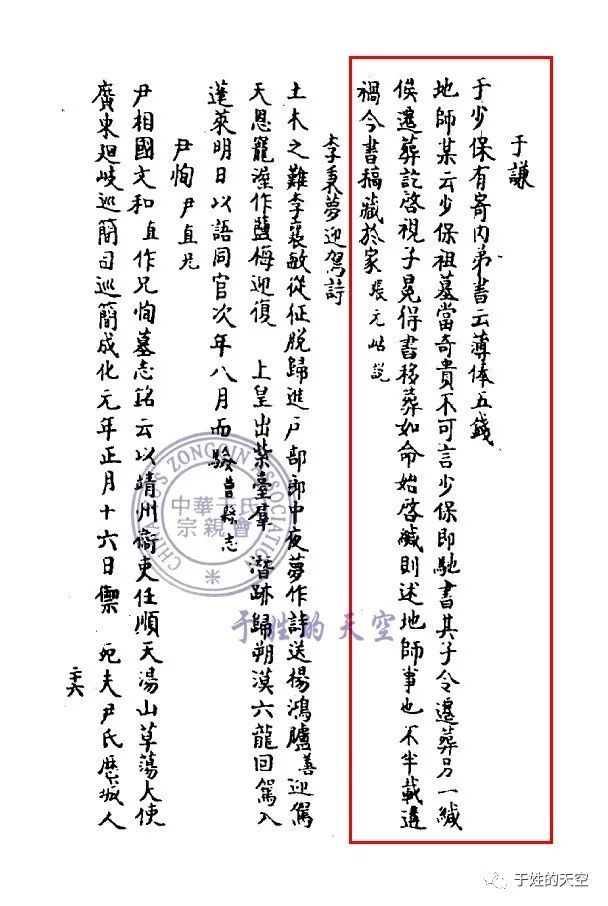 于謙
于少保有寄內弟書云薄俸五錢
地師某云少保祖墓當奇貴不可言少保即馳書其子令遷葬另一緘
俟遷葬訖啓視子冕得書移葬如命始啓緘則述地師事也不半載遘
禍今書稿藏於家張元岵說
李秉夢迎駕詩
土木之難李襄敏從征脫歸進戶部郎中夜夢作詩送楊鴻臚善迎駕
天恩寵渥作鹽梅迎復 上皇出紫臺羣 潛跡歸朔漠六龍回駕入
蓬萊明日以語同官次年八月而驗曹縣志
尹恂尹直兄
尹相國文和直作兄恂墓志銘云以靖州衛吏任順天湯山草蕩大使
廣東廻岐巡簡司巡簡成化元年正月十六日禦 死夫尹氏歷城人
二十六
中華于氏
宗親會
CHINA YU'S ZONGQIN ASSOCIATION
于姓的天空
于姓的天空